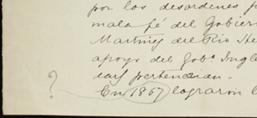 por los desordenes f
mala fé del Gobier
Martinez del Rio He
apoyo del Gobº. Ingl
das pertenecian.
? En 1867 lograron l